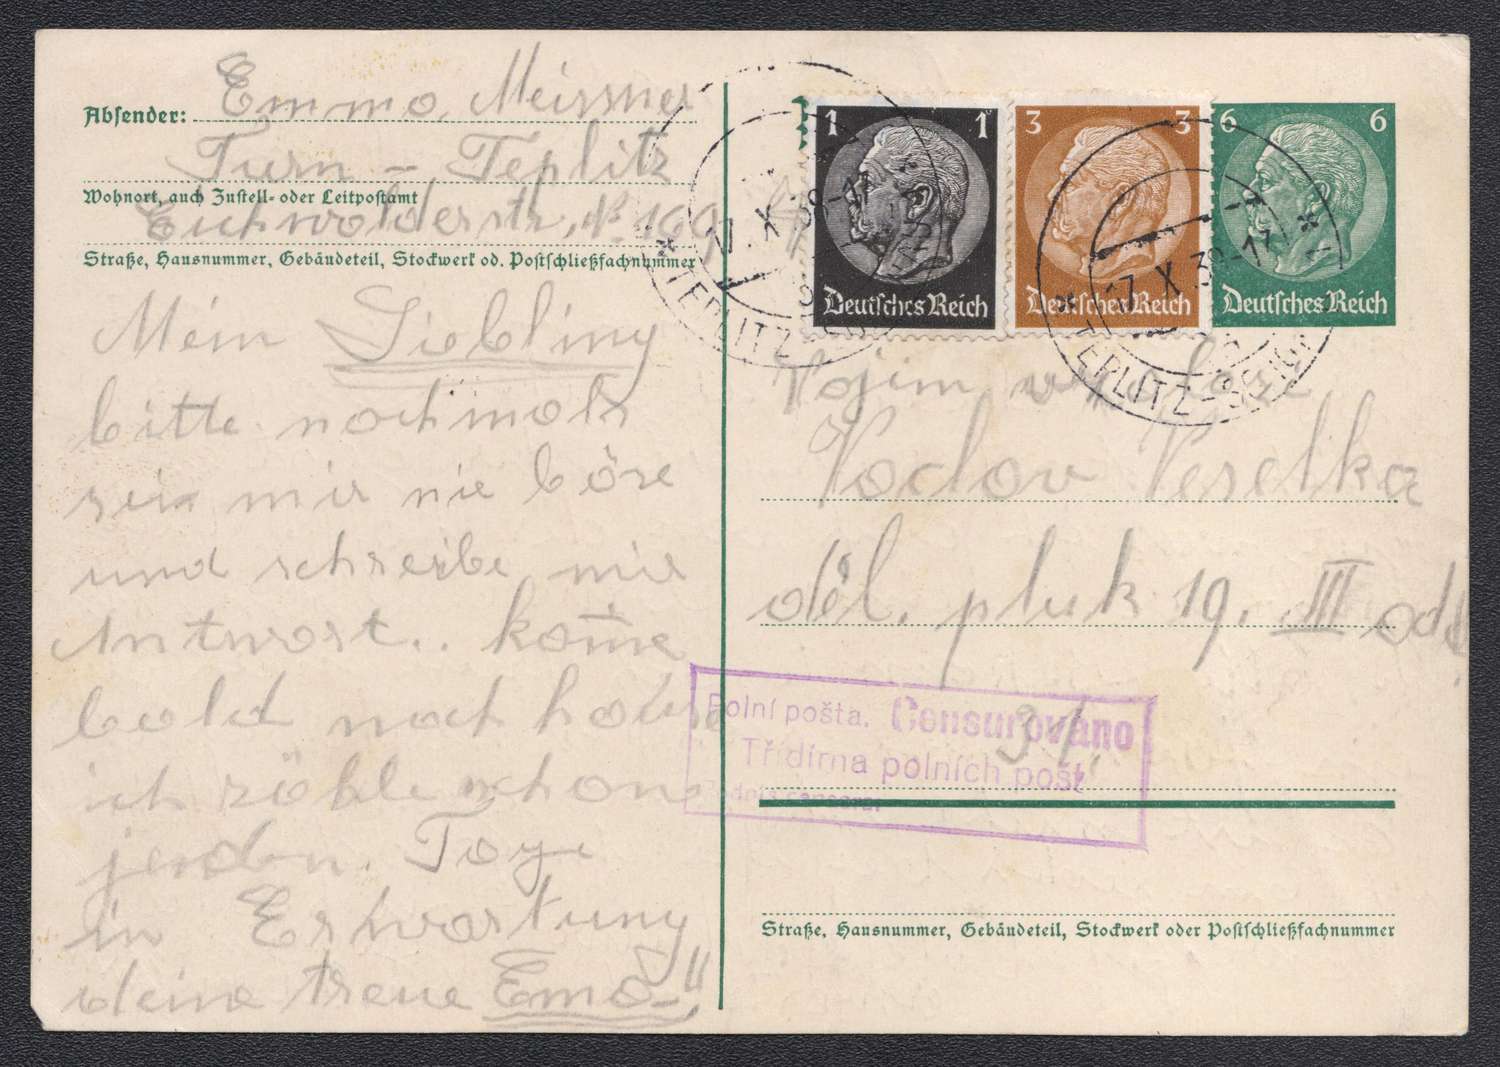 Absender: Emma Meissner
Turn - Teplitz
Wohnort, auch Zustell- oder Leitpostamt
Eichwalderstr. № 169
Straße, Hausnummer, Gebäudeteil, Stockwerk od. Postschließfachnummer
Mein Liebling
bitte nochmals
sei mir nie böse
und schreibe mir
Antwort.. kom̄e
bald nach hause
ich zähle schon
jeden Tage
in Erwartung
deine treue Emo-"
1 1
Deutsches Reich
3 3
Deutsches Reich
6 6
Deutsches Reich
17. X 38-17
TEPLITZ-SCHÖNAU
17 X 38-17
TEPLITZ-SCHÖNAU
Vojím
Vaclav Veselka
děl. pluk 19. III odd
Polní pošta. Censurováno
Třídírna polních pošt
Podpis censora:
Straße, Hausnummer, Gebäudeteil, Stockwerk oder Postschließfachnummer